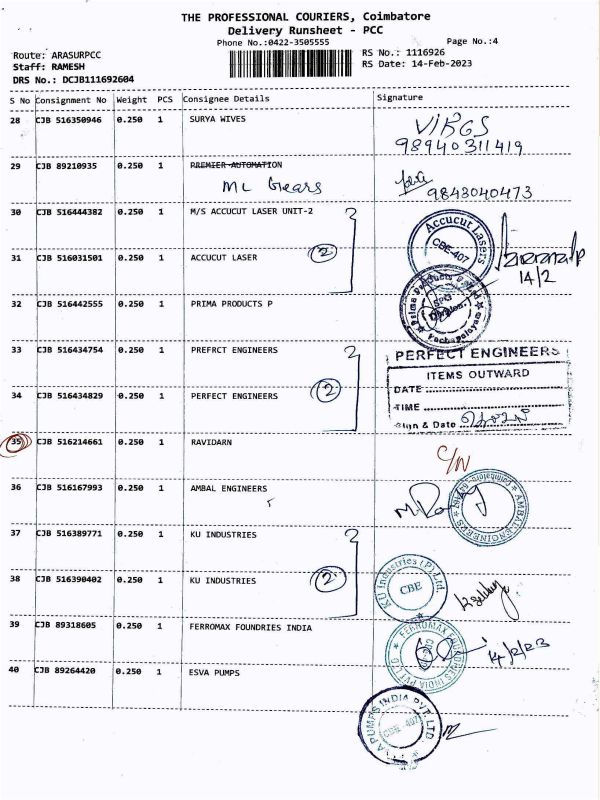 THE PROFESSIONAL COURIERS, Coimbatore
Delivery Runsheet - PCC
Phone No.:0422-3505555 Page No.:4
Route: ARASURPCC RS No.: 1116926
Staff: RAMESH RS Date: 14-Feb-2023
DRS No.: DCJB111692604
S No Consignment No Weight PCS Consignee Details Signature
28 CJB 516350946 0.250 1 SURYA WIVES
VIRGS
98940311419
29 CJB 89210935 0.250 1 PREMIER AUTOMATION
ML Gears
9843040473
30 CJB 516444382 0.250 1 M/S ACCUCUT LASER UNIT-2
Accucut Lasers
CBE-407
31 CJB 516031501 0.250 1 ACCUCUT LASER 2
14/2
32 CJB 516442555 0.250 1 PRIMA PRODUCTS P
Prima Products P Ltd
SPG
Division
33 CJB 516434754 0.250 1 PREFRCT ENGINEERS
PERFECT ENGINEERS
ITEMS OUTWARD
DATE
34 CJB 516434829 0.250 1 PERFECT ENGINEERS 2
TIME
Sign & Date
35 CJB 516214661 0.250 1 RAVIDARN
C/N
36 CJB 516167993 0.250 1 AMBAL ENGINEERS
AMBAL ENGINEERS
37 CJB 516389771 0.250 1 KU INDUSTRIES
38 CJB 516390402 0.250 1 KU INDUSTRIES 2
KU Industries (P) Ltd.
CBE
39 CJB 89318605 0.250 1 FERROMAX FOUNDRIES INDIA
FERROMAX FOUNDRIES INDIA PVT LTD
14/2/23
40 CJB 89264420 0.250 1 ESVA PUMPS
PUMPS INDIA PVT. LTD.
CBE-407